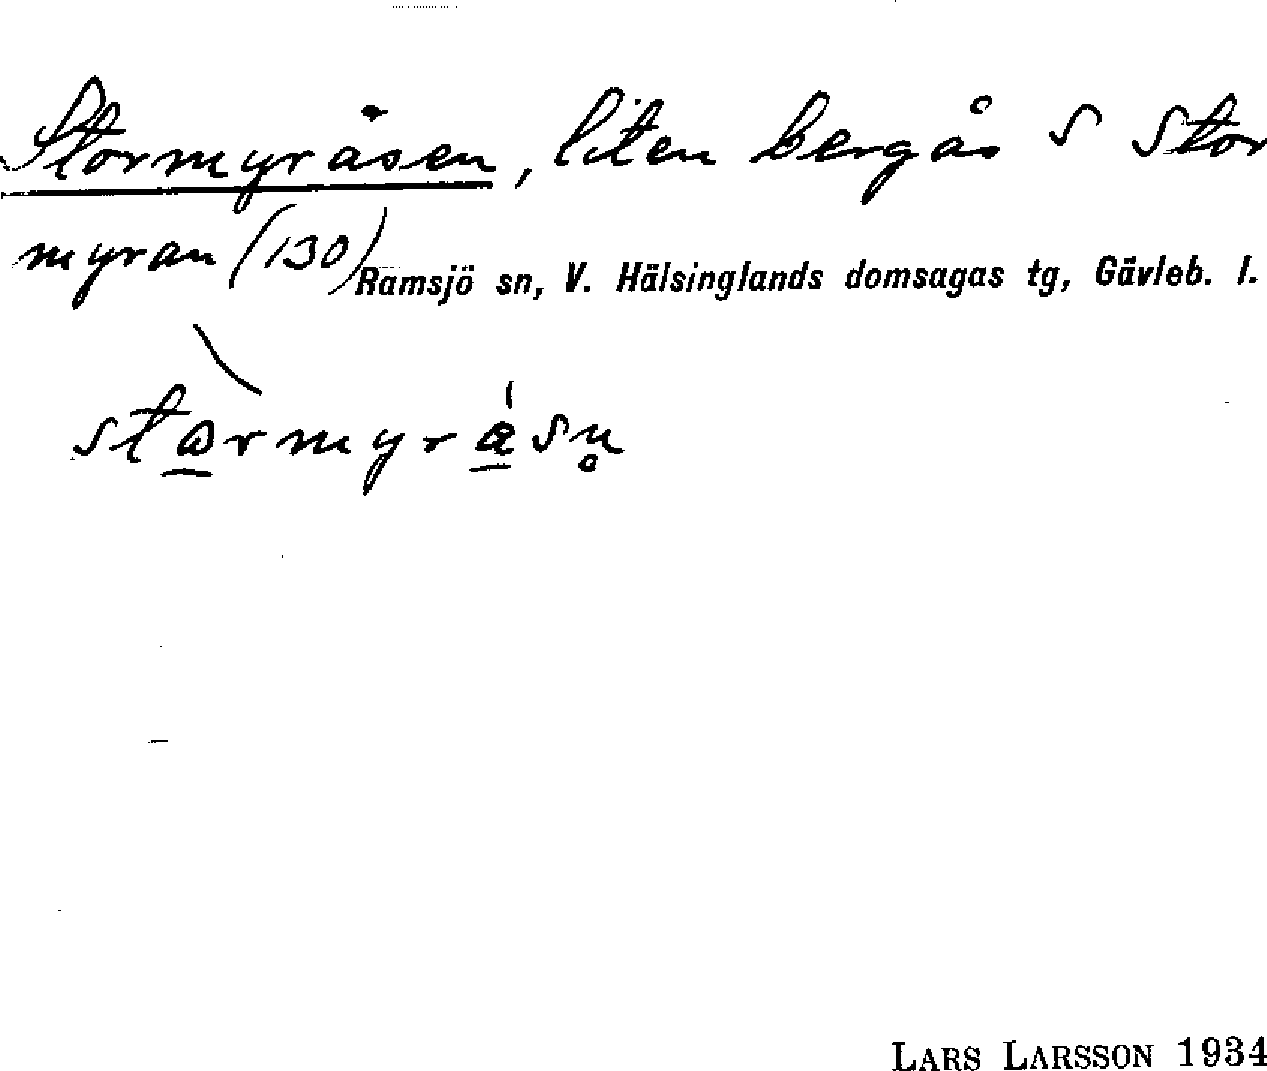 Stormyråsen, liten bergås S Stor
myran (130) Ramsjö sn, V. Hälsinglands domsagas tg, Gävleb. l.
LARS LARSSON 1934